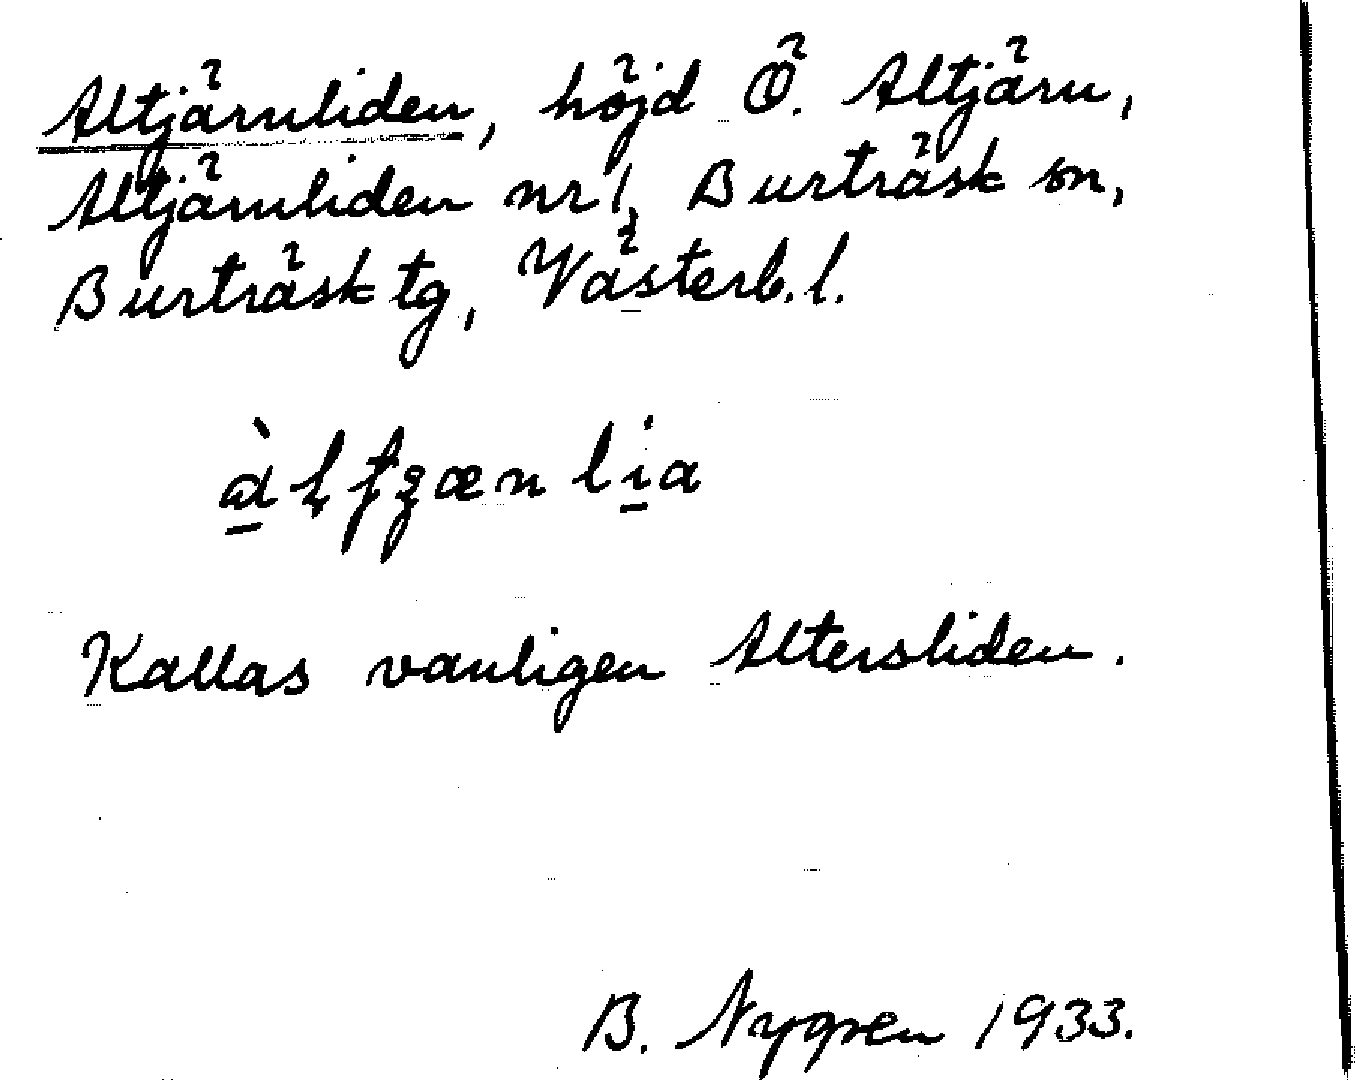 Altjärnliden, höjd Ö. Altjärn,
Altjärnliden nr 1, Burträsk sn,
Burträsk tg, Västerb. l.
Kallas vanligen Altersliden.
B. Nygren 1933.